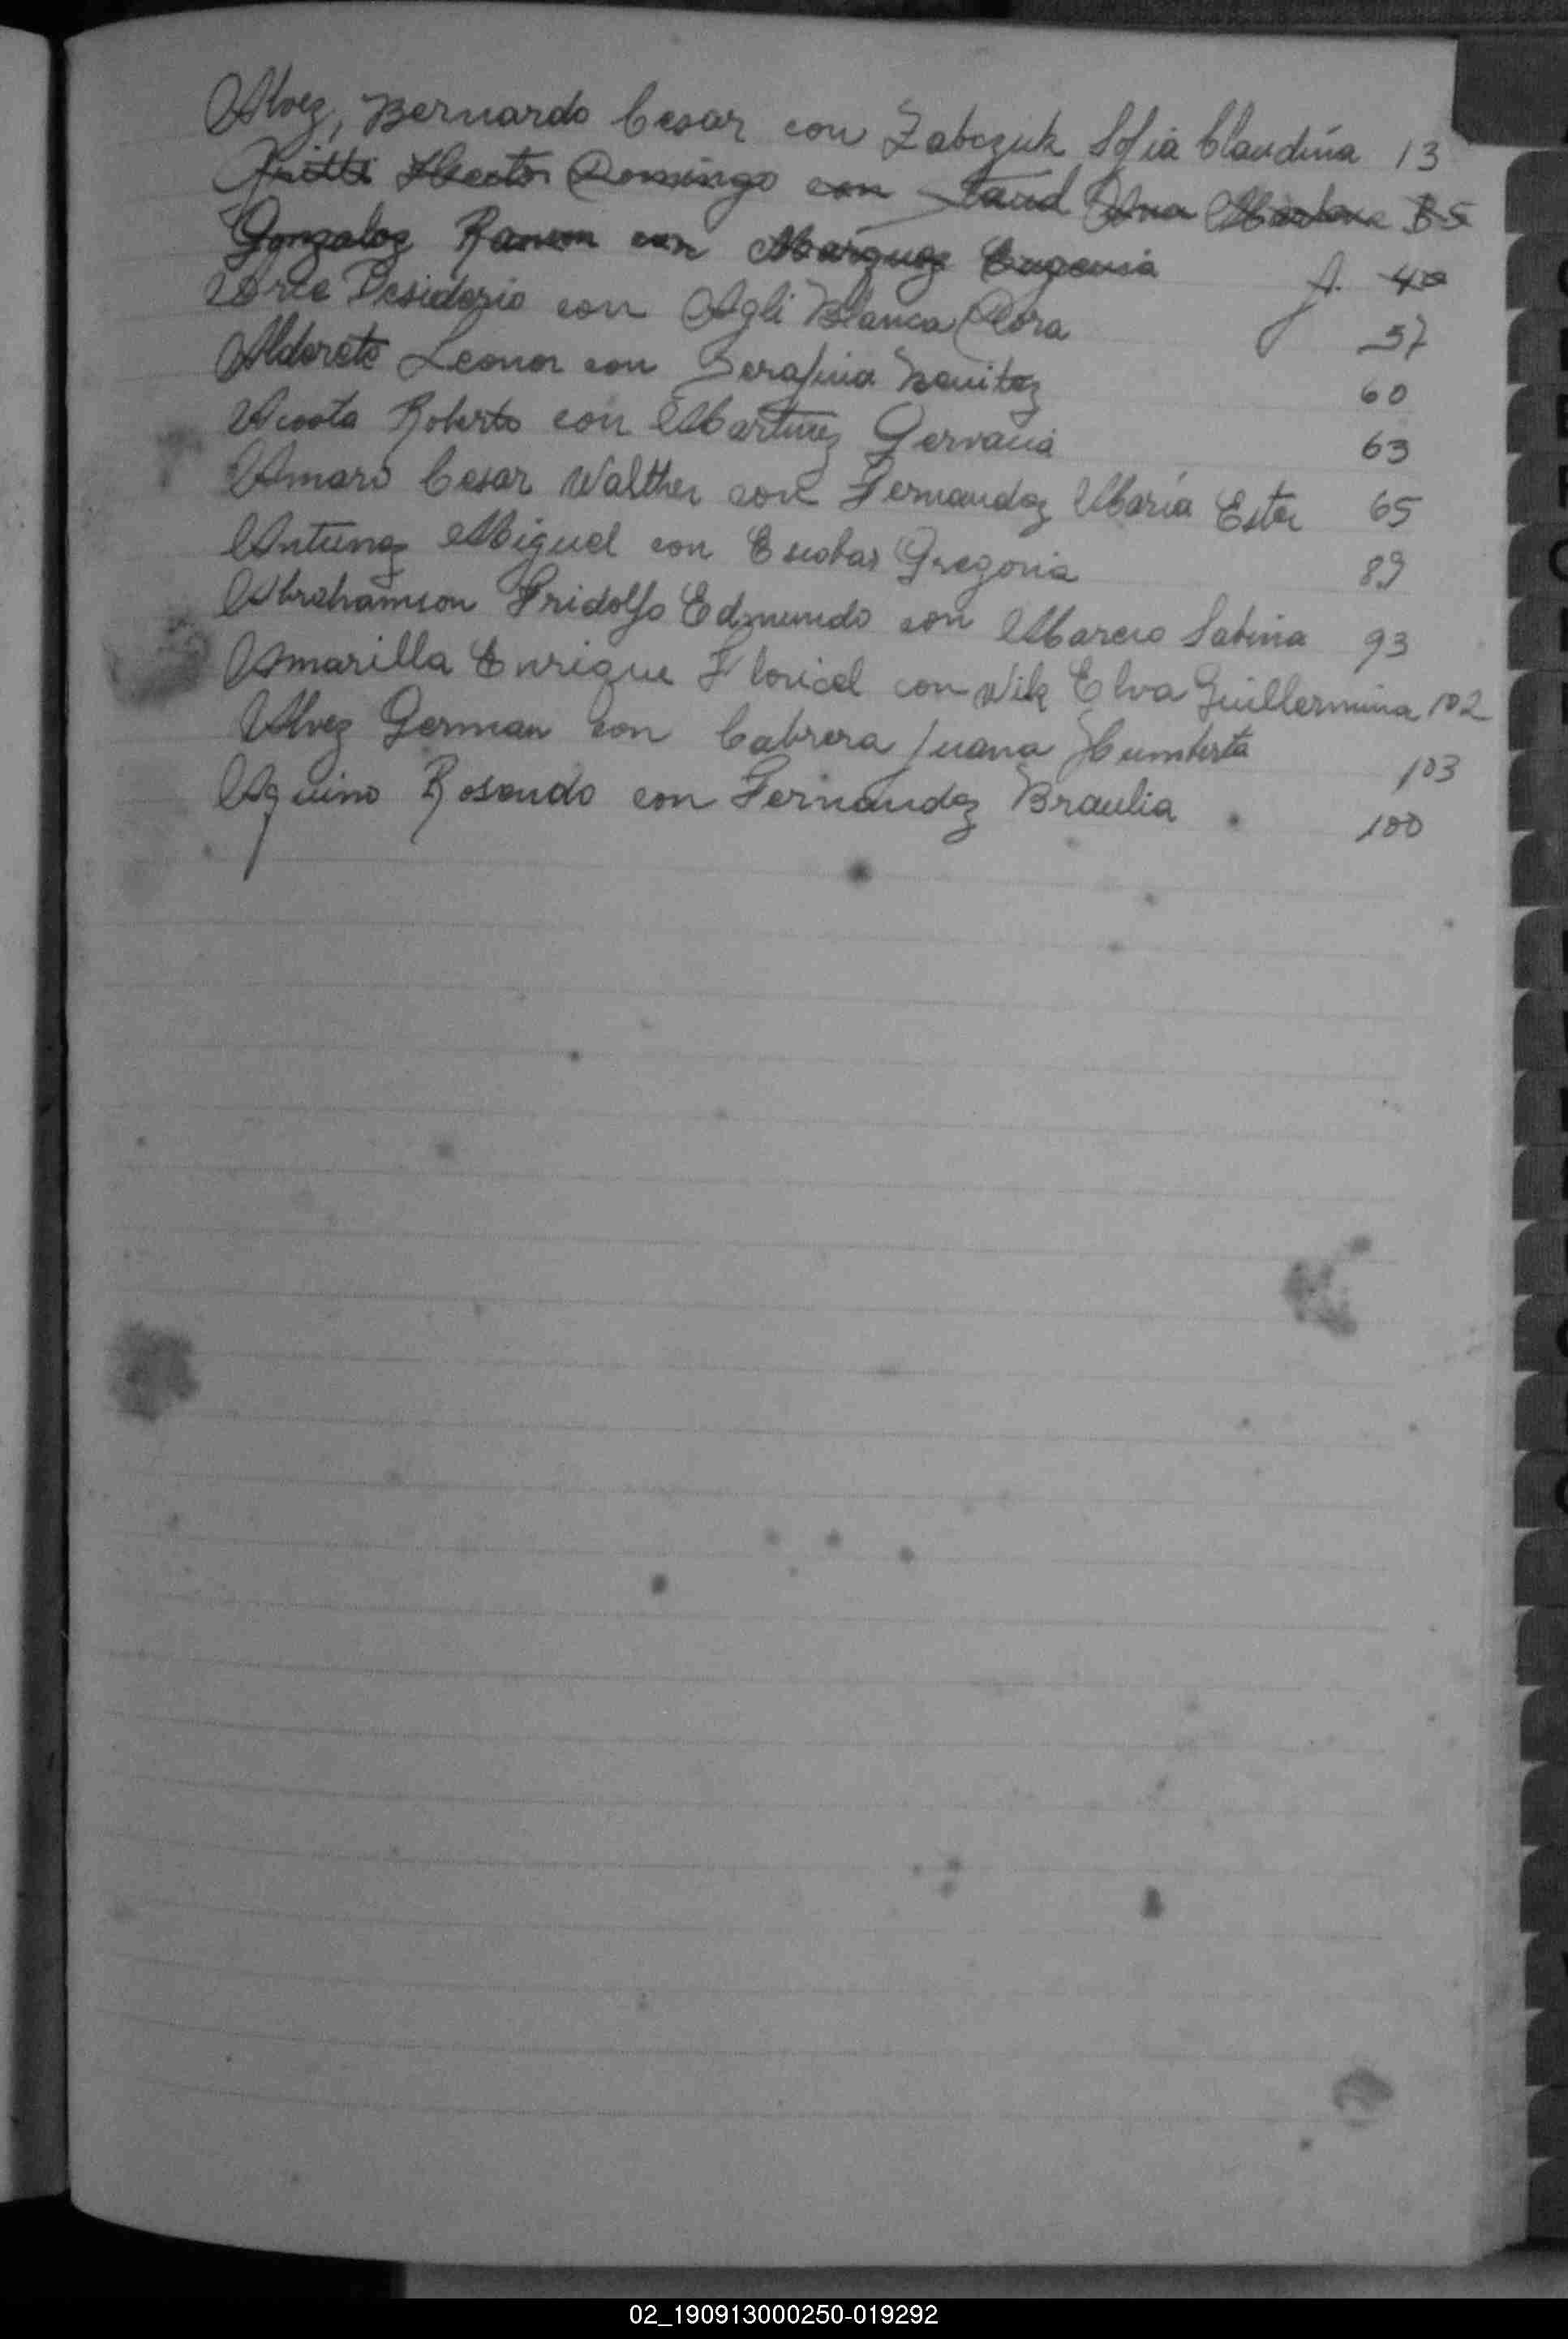 Alvez, Bernardo Cesar con Zabczuk Sofia Claudina 13
Hector Domingo con Ana 35
Gonzalez Ramon con Marquez Eugenia f. 40
Arce Desiderio con Agli Blanca Flora 57
Alderete Leonor con Serafina Benitez 60
Acosta Roberto con Martinez Gervacia 63
Amaro Cesar Walther con Fernandez María Ester 65
Antunez Miguel con Escobar Gregoria 89
Abrahamson Fridolfo Edmundo con Sabina 93
Amarilla Enrique Floricel con Elva Guillermina 102
Alvez German con Cabrera Juana Humberta 103
Aquino Rosendo con Fernandez Braulia 100
02_190913000250-019292